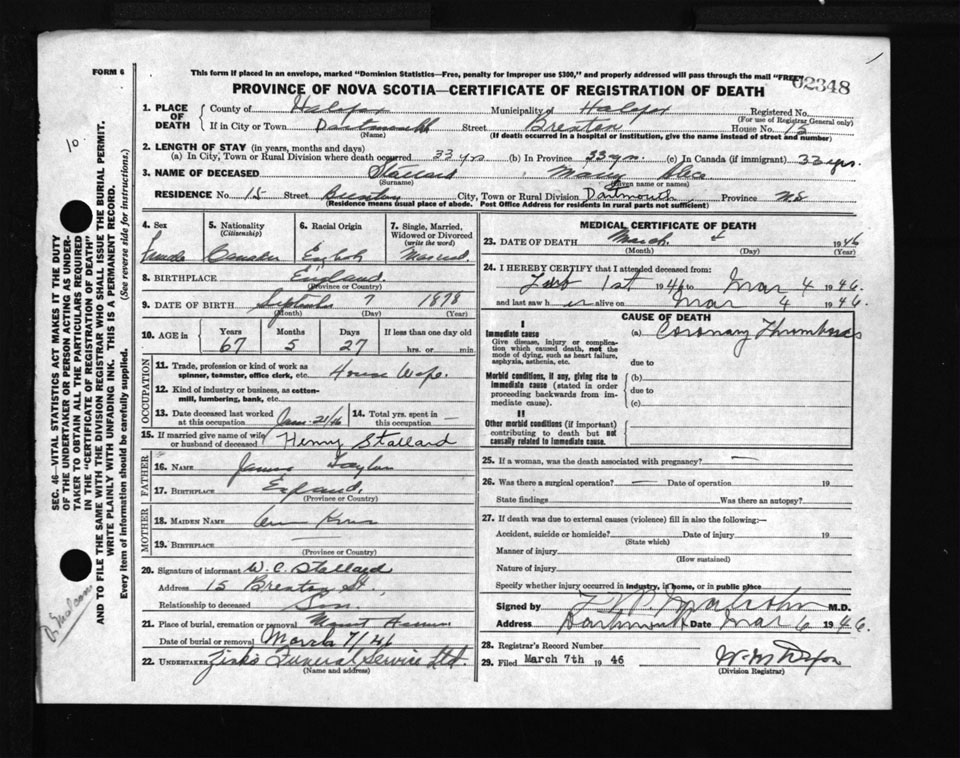 FORM 6
This form if placed in an envelope, marked "Dominion Statistics—Free, penalty for improper use $300," and properly addressed will pass through the mail "FREE"
02348
PROVINCE OF NOVA SCOTIA—CERTIFICATE OF REGISTRATION OF DEATH
1. PLACE OF DEATH
County of Halifax Municipality of Halifax Registered No.
(For use of Registrar General only)
If in City or Town Dartmouth Street Brenton House No. 15
(Name) (If death occurred in a hospital or institution, give the name instead of street and number)
2. LENGTH OF STAY (in years, months and days)
(a) In City, Town or Rural Division where death occurred 33 yrs (b) In Province 33 yrs. (c) In Canada (if immigrant) 33 yrs.
3. NAME OF DECEASED Stallard, Mary Alice
(Surname) (Given name or names)
RESIDENCE No. 15 Street Brenton City, Town or Rural Division Dartmouth, Province N.S
(Residence means usual place of abode. Post Office Address for residents in rural parts not sufficient)
4. Sex
Female
5. Nationality
(Citizenship)
6. Racial Origin
English
7. Single, Married, Widowed or Divorced
(write the word)
Married
8. BIRTHPLACE England
(Province or Country)
9. DATE OF BIRTH September 7 1878
(Month) (Day) (Year)
10. AGE in Years Months Days If less than one day old
67 5 27 hrs. or min.
OCCUPATION
11. Trade, profession or kind of work as spinner, teamster, office clerk, etc. House Wife
12. Kind of industry or business, as cotton-mill, lumbering, bank, etc.
13. Date deceased last worked at this occupation 21/46
14. Total yrs. spent in this occupation —
15. If married give name of wife or husband of deceased Henry Stallard
FATHER
16. NAME James Taylor
17. BIRTHPLACE England
(Province or Country)
MOTHER
18. MAIDEN NAME
19. BIRTHPLACE —
(Province or Country)
20. Signature of informant W. C. Stallard
Address 15 Brenton St.,
Relationship to deceased Son
21. Place of burial, cremation or removal Mount Hermon
Date of burial or removal March 7/46
22. UNDERTAKER Zink's Funeral Service Ltd.
(Name and address)
MEDICAL CERTIFICATE OF DEATH
23. DATE OF DEATH March 4 1946
(Month) (Day) (Year)
24. I HEREBY CERTIFY that I attended deceased from:
Feb 1st 1946 to Mar 4 1946.
and last saw h er alive on Mar 4 1946.
CAUSE OF DEATH
I
Immediate cause
Give disease, injury or complication which caused death, not the mode of dying, such as heart failure, asphyxia, asthenia, etc.
(a) Coronary Thrombosis
due to
Morbid conditions, if any, giving rise to immediate cause (stated in order proceeding backwards from immediate cause).
(b)
due to
(c)
II
Other morbid conditions (if important) contributing to death but not causally related to immediate cause.
25. If a woman, was the death associated with pregnancy? —
26. Was there a surgical operation? — Date of operation 19
State findings Was there an autopsy?
27. If death was due to external causes (violence) fill in also the following:—
Accident, suicide or homicide? Date of injury 19
(State which)
Manner of injury
(How sustained)
Nature of injury
Specify whether injury occurred in industry, in home, or in public place
Signed by M.D.
Address Dartmouth Date Mar 6 1946.
28. Registrar's Record Number
29. Filed March 7th 1946
(Division Registrar)
SEC. 46—VITAL STATISTICS ACT MAKES IT THE DUTY
OF THE UNDERTAKER OR PERSON ACTING AS UNDER-
TAKER TO OBTAIN ALL THE PARTICULARS REQUIRED
IN THE "CERTIFICATE OF REGISTRATION OF DEATH"
AND TO FILE THE SAME WITH THE DIVISION REGISTRAR WHO SHALL ISSUE THE BURIAL PERMIT.
WRITE PLAINLY WITH UNFADING INK. THIS IS A PERMANENT RECORD.
Every item of information should be carefully supplied. (See reverse side for instructions.)
10